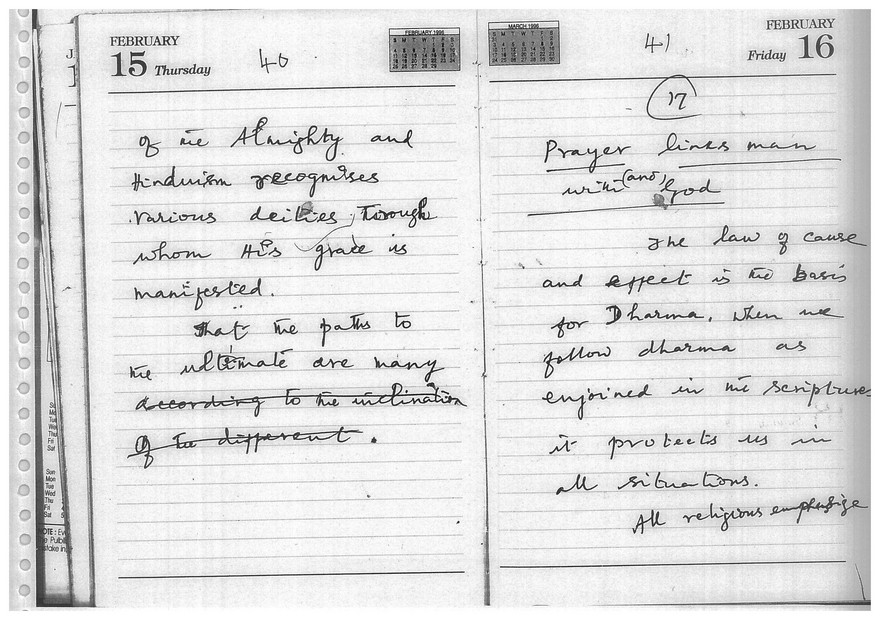 FEBRUARY
15 Thursday
40
FEBRUARY 1996
of the Almighty and
Hinduism recognises
various deities, through
whom His grace is
manifested.
That the paths to
the ultimate are many
according to the inclination
of the different.
FEBRUARY
Friday 16
41
MARCH 1996
17
Prayer links man
with (and) God
The law of cause
and effect is the basis
for Dharma. When we
follow dharma as
enjoined in the scriptures
it protects us in
all situations.
All religions emphasize
Sun
Mon
Tue
Wed
Thu
Fri
Sat